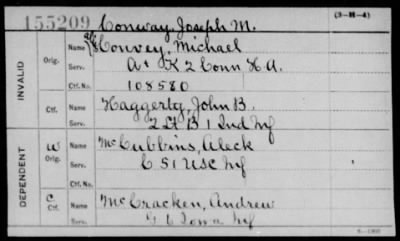 155209 Conway, Joseph M. (3-H-4)
INVALID
Orig. Name Convey, Michael
Serv. A & K 2 Conn H.A.
Ctf. No. 108580
Ctf. Name Haggerty, John B.
Serv. 2 Lt B 1 Ind Inf
DEPENDENT
W Orig. Name McCubbins, Aleck
Serv. C 51 USC Inf
Ctf. No.
C Ctf. Name McCracken, Andrew
Serv. G 6 Iowa Inf